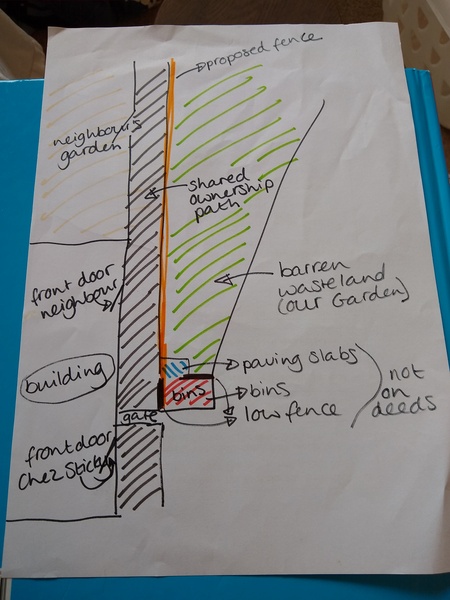 proposed fence
neighbour's
garden
shared
ownership
path
barren
wasteland
(our Garden)
front door
neighbour
building
paving slabs
bins
bins
low fence
not
on
deeds
gate
front door
Chez Sticky